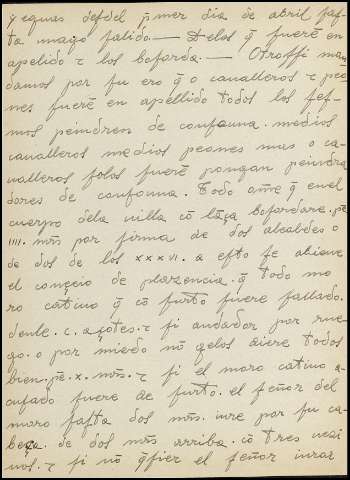 yeguas desdel p̄mer dia de abril fas-
ta mayo salido.— Delos q̄ fuerē en
apelido τ los boforda.— Otrossi man-
damos por fu ero q̄ o cavalleros τ peo-
nes fuerē en apellido todos los sef-
mos peindren de confauna. medios
cavalleros medios peones mas o ca-
valleros solos fuerē pongan peindra
dores de confauna. Todo om̄e q̄ enel
cuerpo dela villa cō lāça bofordare. pē
IIII. mr̄s por firma de dos alcaldes o
de dos de los xxxvi. a esto se abiene
el conçeio de plazencia. q̄ todo mo
ro cativo q̄ cō furto fuere fallado.
denle .c. açotes. τ si andador por rue-
go. o por miedo nō gelos diere todos
bien. pē. x. mr̄s. τ si el moro cativo a-
cusado fuere de furto. el señor del
moro fasta dos mr̄s. iure por su ca-
beça. de dos mr̄s arriba. cō tres vezi
nos. τ si nō q̄sier el señor iurar